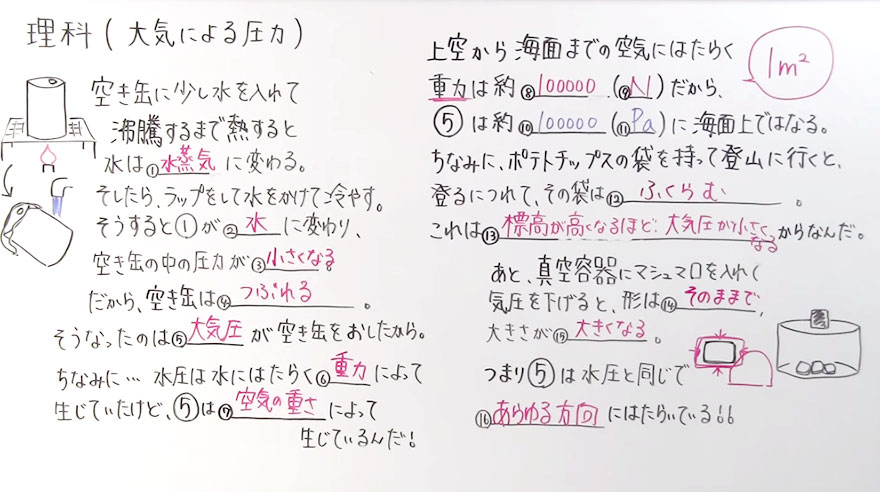 理科(大気による圧力)
空き缶に少し水を入れて
沸騰するまで熱すると
水は①水蒸気に変わる。
そしたら、ラップをして水をかけて冷やす。
そうすると①が②水に変わり、
空き缶の中の圧力が③小さくなる。
だから、空き缶は④つぶれる。
そうなったのは⑤大気圧が空き缶をおしたから。
ちなみに… 水圧は水にはたらく⑥重力によって
生じていたけど、⑤は⑦空気の重さによって
生じているんだ!
上空から海面までの空気にはたらく
1m²
重力は約⑧100000(⑨N)だから、
⑤は約⑩100000(⑪Pa)に海面上ではなる。
ちなみに、ポテトチップスの袋を持って登山に行くと、
登るにつれて、その袋は⑫ふくらむ。
これは⑬標高が高くなるほど大気圧が小さくなるからなんだ。
あと、真空容器にマシュマロを入れて
気圧を下げると、形は⑭そのままで、
大きさが⑮大きくなる。
つまり⑤は水圧と同じで
⑯あらゆる方向にはたらいている!!